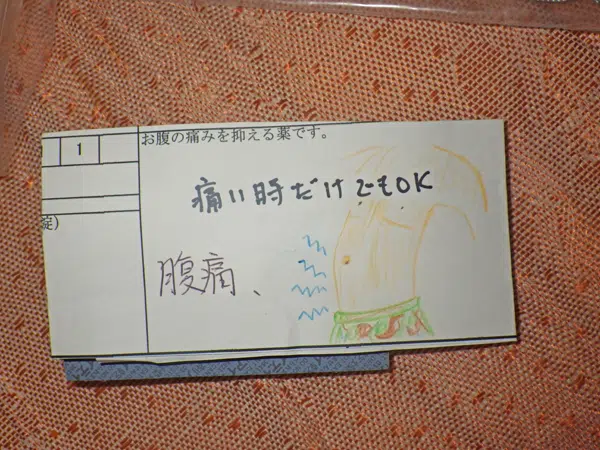 1
お腹の痛みを抑える薬です。
痛い時だけでもOK
錠)
腹痛、